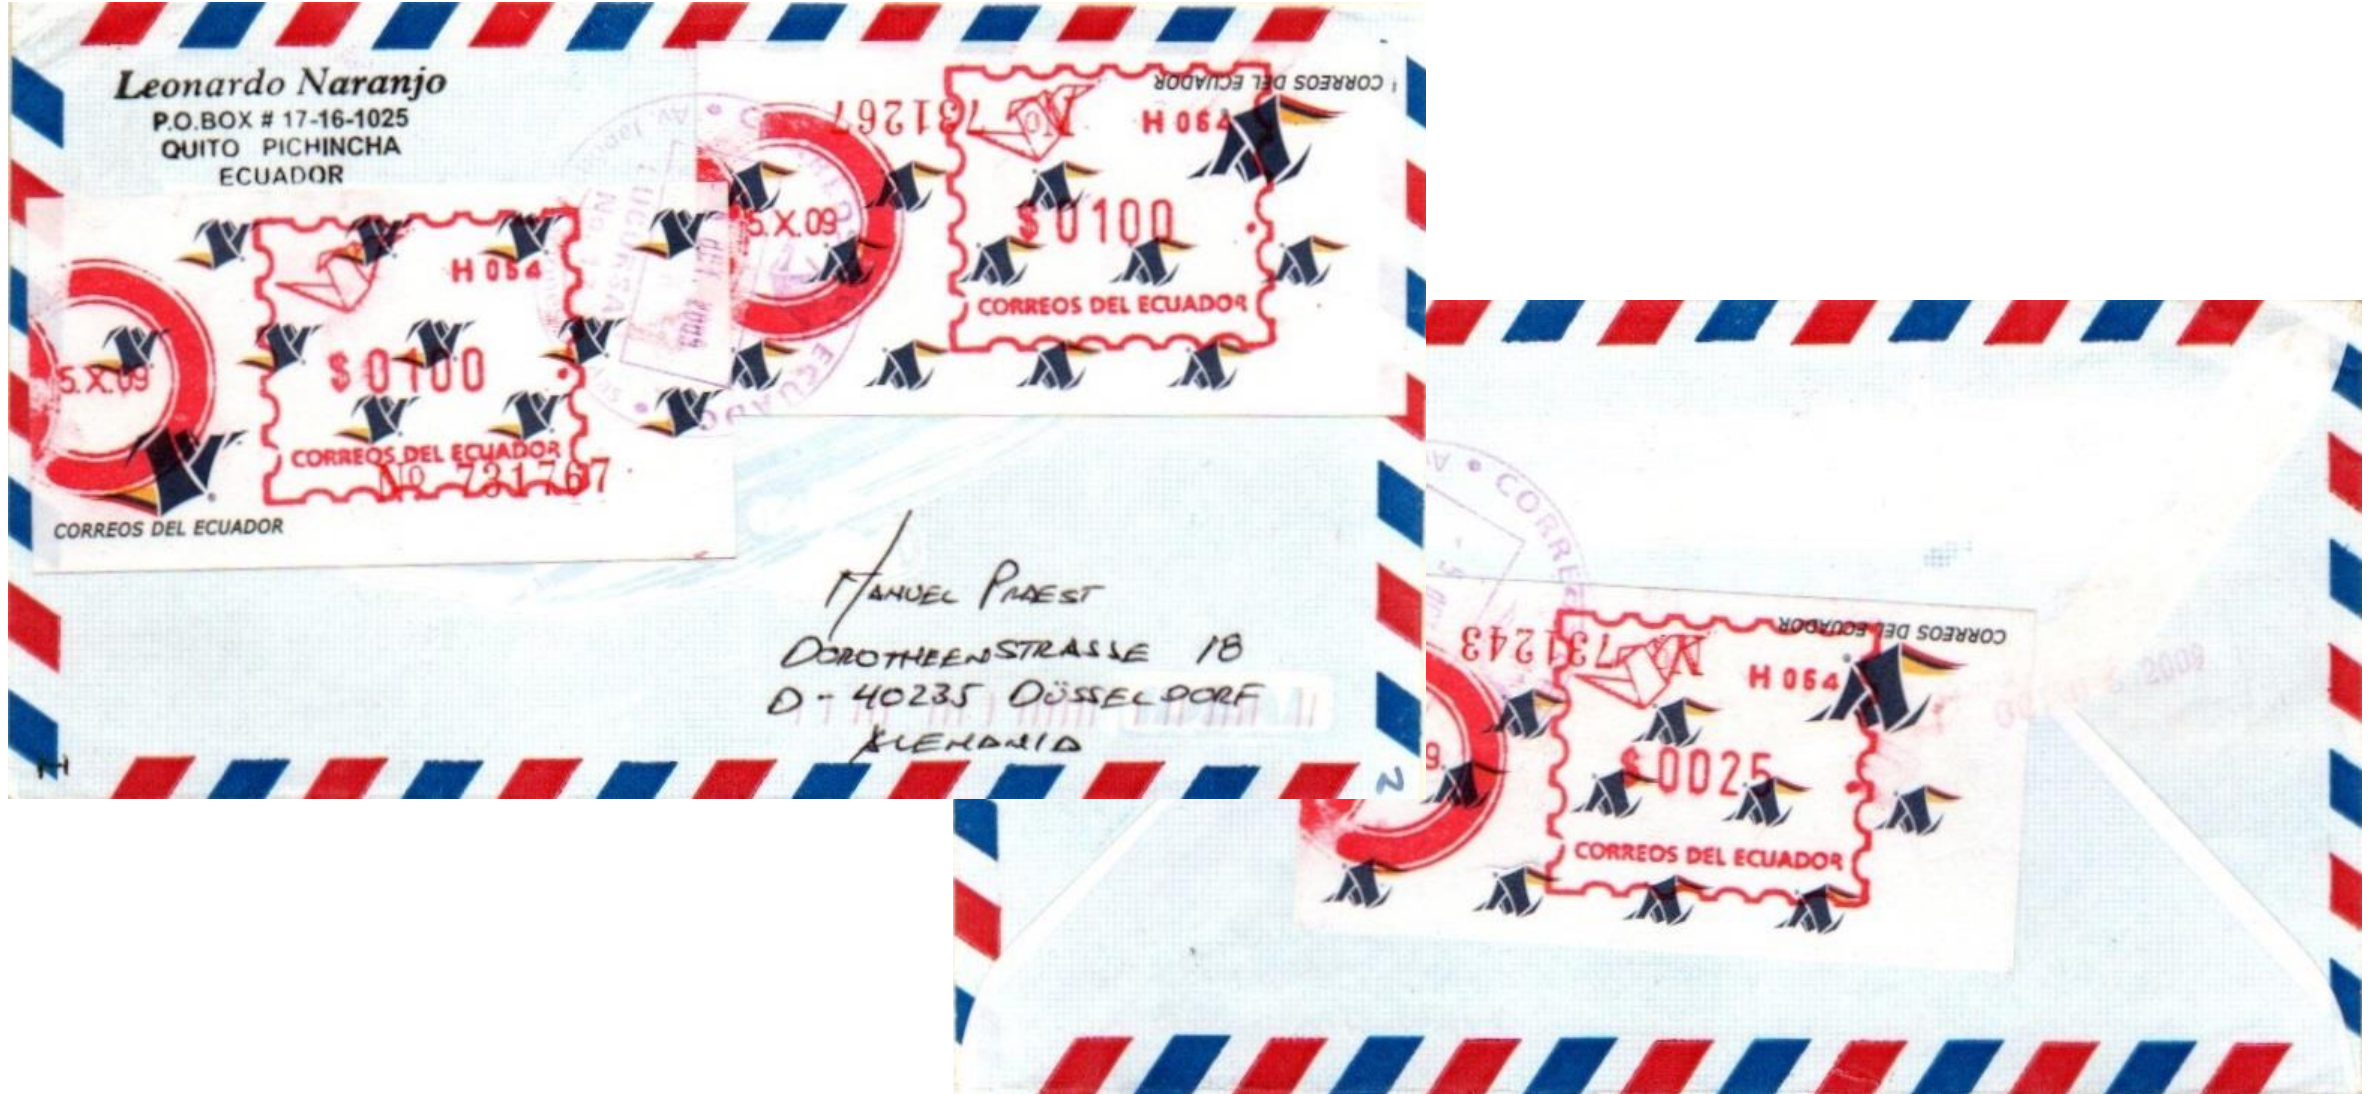 Leonardo Naranjo
P.O.BOX # 17-16-1025
QUITO PICHINCHA
ECUADOR
5.X.09
H 064
$ 0100
CORREOS DEL ECUADOR
No 731767
CORREOS DEL ECUADOR
CORREOS DEL ECUADOR
No 731267
H 064
5.X.09
$ 0100
CORREOS DEL ECUADOR
SUCURSAL
No
OCT. 2009
ECUADOR
MANUEL PRAEST
DOROTHEENSTRASSE 18
D - 40235 DÜSSELDORF
ALEMANIA
2
CORREOS DEL ECUADOR
No 731243
H 064
9
$ 0025
CORREOS DEL ECUADOR
2009